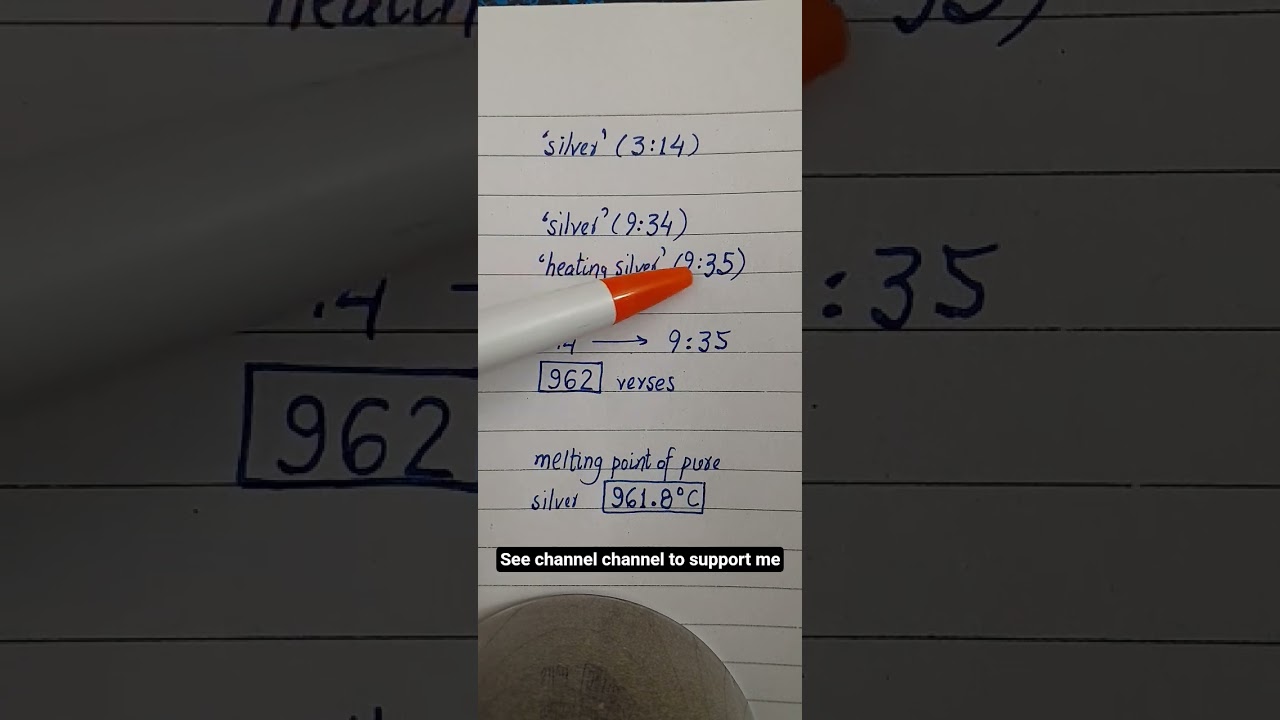 'silver' (3:14)
'silver' (9:34)
'heating silver' (9:35)
.4 → 9:35
962 verses
melting point of pure
silver 961.8°C
See channel channel to support me
: 35
.4
962